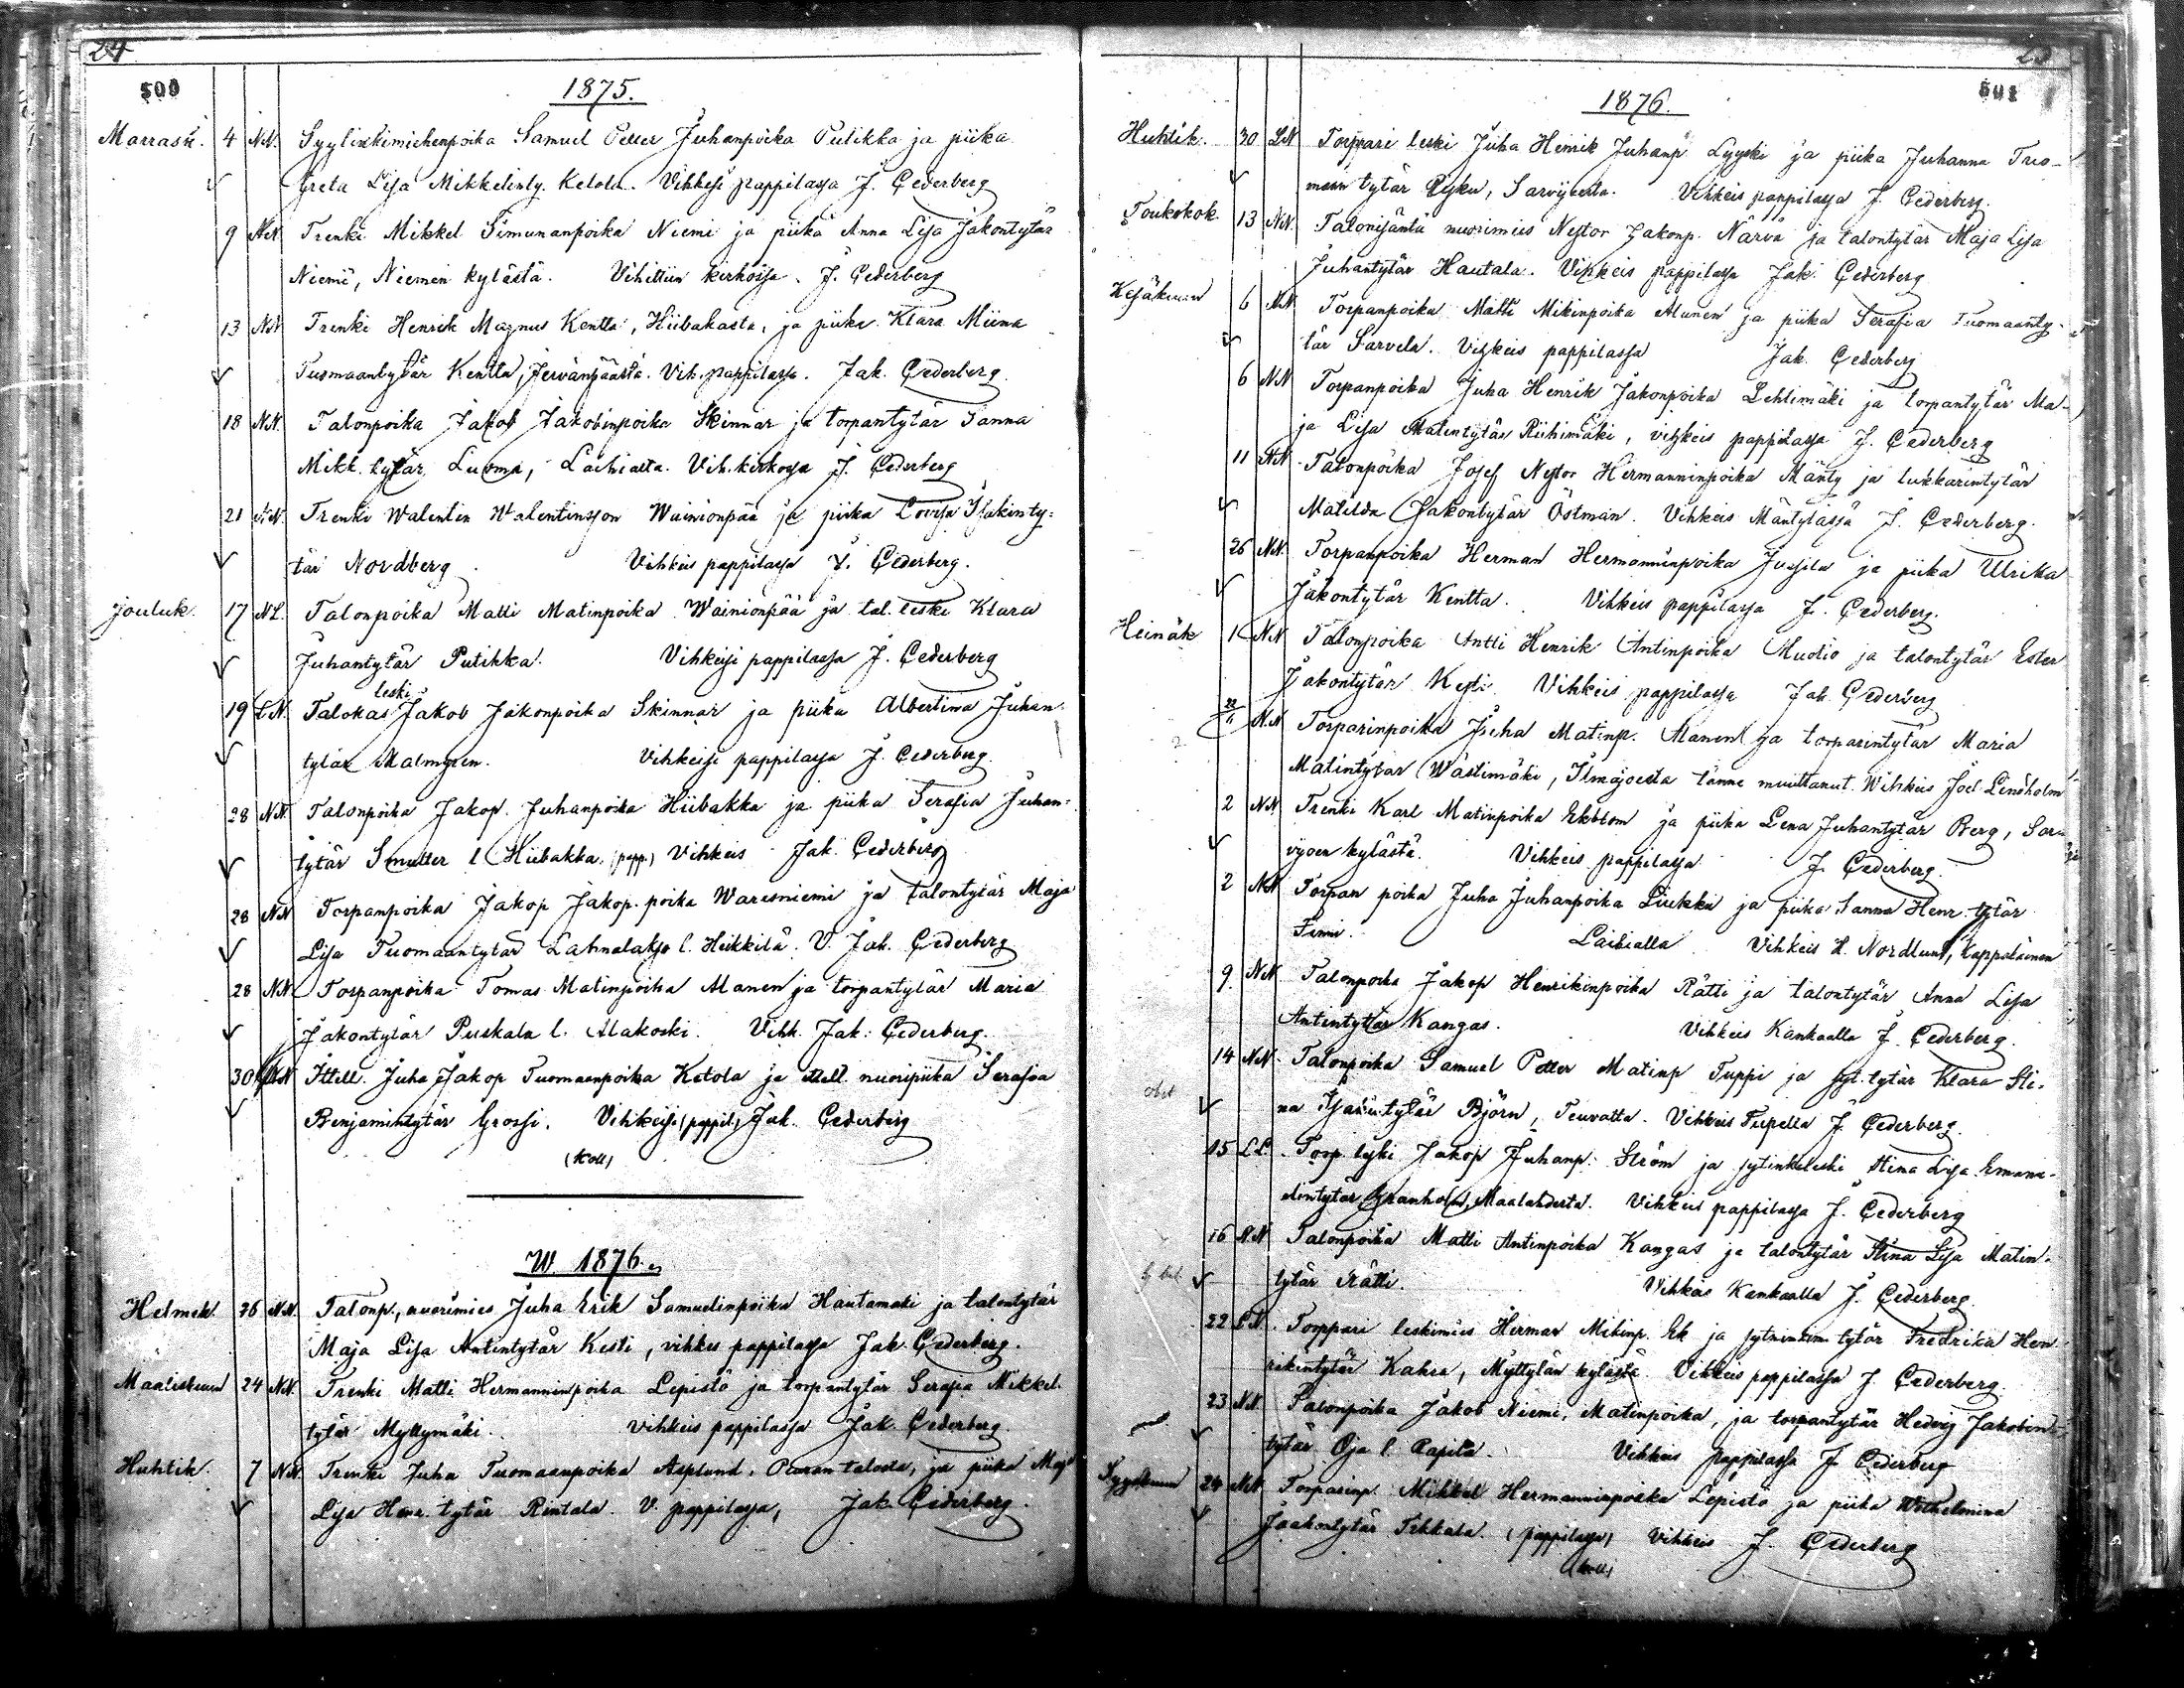 24
500
1875.
Marrask. 4 N.N. Syytinkimiehenpoika Samuel Petter Juhanpoika Putikka ja piika
Greta Lisa Mikkelinty. Ketola. Vihkeisi pappilassa J. Cederberg
9 N.N. Trenki Mikkel Simunanpoika Niemi ja piika Anna Lisa Jakontytär
Niemi, Niemen kylästä. Vihittiin kirkossa. J. Cederberg
13 N.N. Trenki Henrik Magnus Kentta, Hiibakasta, ja piika Klara Miina
Tuomaantytär Kentta, Jervänpäästä. Vih. pappilassa. Jak. Cederberg
18 N.N. Talonpoika Jakob Jakobinpoika Skinnar ja torpantytär Sanna
Mikk. tytär Luoma, Laihialta. Vih. kirkossa J. Cederberg
21 N.N. Trenki Walentin Walentinsson Wainionpää ja piika Lovisa Isakinty-
tär Nordberg. Vihkeis pappilassa J. Cederberg.
Jouluk. 17 N.L. Talonpoika Matti Matinpoika Wainionpää ja tal. leski Klara
Juhantytär Putikka. Vihkeisi pappilassa J. Cederberg
leski
19 L.N. Talokas Jakob Jakonpoika Skinnar ja piika Albertina Juhan-
tytär Malmgren. Vihkeisi pappilassa J. Cederberg.
28 N.N. Talonpoika Jakop. Juhanpoika Hiibakka ja piika Serafia Juhan-
tytär Smulter l. Hiibakka. (papp.) Vihkeis Jak. Cederberg
28 N.N. Torpanpoika Jakop Jakop. poika Waresniemi ja talontytär Maja
Lisa Tuomaantytär Lahnalakso l. Heikkilä. V. Jak. Cederberg
28 N.N. Torpanpoika Tomas Matinpoika Alanen ja torpantytär Maria
Jakontytär Puskala l. Alakoski. Vihk. Jak. Cederberg.
30 N.N. Ittell. Juha Jakop Tuomaanpoika Ketola ja ittell. nuoripiika Serafia
Benjamintytär Grossi. Vihkeisi (pappil.) Jak. Cederberg
(Koll)
W. 1876.
Helmik. 26 N.N. Talonp., nuorimies Juha Erik Samuelinpoika Hautamäki ja talontytär
Maja Lisa Antintytär Kesti, vihkei pappilassa Jak. Cederberg.
Maaliskuun 24 N.N. Trenki Matti Hermanninpoika Lepistö ja torpantytär Serafia Mikkel.
tytär Myllymäki. Vihkeis pappilassa Jak. Cederberg.
Huhtik. 7 N.N. Trenki Juha Tuomaanpoika Asplund, talosta, ja piika Maja
Lisa Henr. tytär Rintala. V. pappilassa, Jak. Cederberg.
501
1876.
Huhtik. 30 L.N. Torppari leski Juha Henrik Juhanp. Lyyski ja piika Juhanna Tuo-
maan tytär, Sarvijoelta. Vihkeis pappilassa J. Cederberg.
Toukokok. 13 N.N. Talonisäntä nuorimies Nestor Jakonp. Närvä ja talontytär Maja Lisa
Juhantytär Hautala. Vihkeis pappilassa Jak. Cederberg
Kesäkuun 6 N.N. Torpanpoika Matti Mikinpoika Alunen ja piika Serafia Tuomaanty-
tär Sarvela. Vihkeis pappilassa Jak. Cederberg
6 N.N. Torpanpoika Juha Henrik Jakonpoika Lehtimäki ja torpantytär Ma-
ja Lisa Matintytär Riihimäki, vihkeis pappilassa J. Cederberg
11 N.N. Talonpoika Josef Nestor Hermanninpoika Mänty ja lukkarintytär
Matilda Jakontytär Östman. Vihkeis Mäntylässä J. Cederberg.
26 N.N. Torpanpoika Herman Hermanninpoika Jussila ja piika Ulrika
Jakontytär Kentta. Vihkeis pappilassa J. Cederberg.
Heinäk 1 N.N. Talonpoika Antti Henrik Antinpoika Muotio ja talontytär Ester
Jakontytär Kesti. Vihkeis pappilassa Jak. Cederberg
N.N. Torparinpoika Juha Matinp. Alanen ja torparintytär Maria
Matintytär Wästimäki, Ilmajoesta tänne muuttanut. Wihkeis Joel Lindholm
2 N.N. Trenki Karl Matinpoika Ekblom ja piika Lena Juhantytär Berg, Sar-
vijoen kylästä. Vihkeis pappilassa J. Cederberg.
2 N.N. Torpan poika Juha Juhanpoika Liukku ja piika Sanna Henr. tytär
Finni. Laihialla Vihkeis H. Nordlund, kappalainen
9 N.N. Talonpoika Jakop Henrikinpoika Rätti ja talontytär Anna Lisa
Antintytär Kangas. Vihkeis Kankaalla J. Cederberg.
14 N.N. Talonpoika Samuel Petter Matinp Tuppi ja syt. tytär Klara Sti-
na tytär Björn, Teuvalta. Vihkeis Tupella J. Cederberg.
15 L.L. Torp. leski Jakop Juhanp. Ström ja sytinkileski Stina Lisa Emanu-
elintytär Granholm, Maalahdesta. Vihkeis pappilassa J. Cederberg
16 N.N. Talonpoika Matti Antinpoika Kangas ja talontytär Stina Lisa Matin-
tytär Rätti. Vihkeis Kankaalla J. Cederberg.
22 L.N. Torppari leskimies Herman Mikinp. Ek ja tytär Fredrika Hen-
rikintytär Kahra, Myttylän kylästä. Vihkeis pappilassa J. Cederberg.
23 N.N. Talonpoika Jakob Niemi, Matinpoika, ja torpantytär Hedvig Jakobin-
tytär Oja l. Rajala. Vihkeis pappilassa J Cederberg
Syyskuun 24 N.N. Torparinp. Mikkel Hermanninpoika Lepistö ja piika Wilhelmina
Jaakontytär Pekkala. (pappilassa) Vihkeis J. Cederberg
(koll)